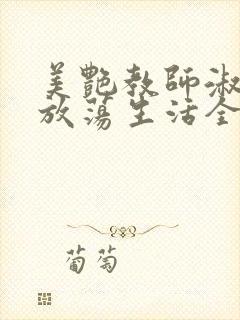 美艷教師淑
放蕩生活全
葡萄